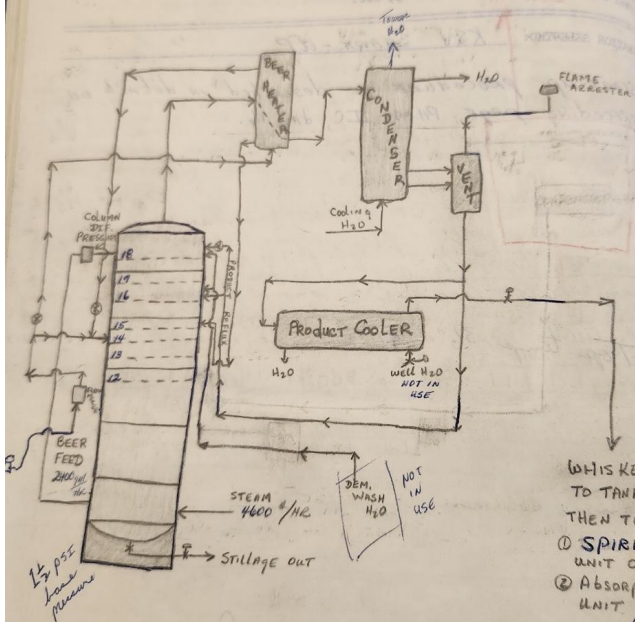 Tower
H2O
BEER
HEATER
CONDENSER
H2O
FLAME
ARRESTER
VENT
Cooling
H2O
COLUMN
DIF.
PRESSURE
18
17
16
15
14
13
12
PRODUCT REFLUX
PRODUCT COOLER
H2O
WELL H2O
NOT IN
USE
BEER
FEED
STEAM
4600 #/HR
DEM.
WASH
H2O
NOT
IN
USE
STILLAGE OUT
1 1/2 PSI
base
pressure
WHISKE
TO TAN
THEN T
① SPIRI
UNIT O
② ABSORP
UNIT